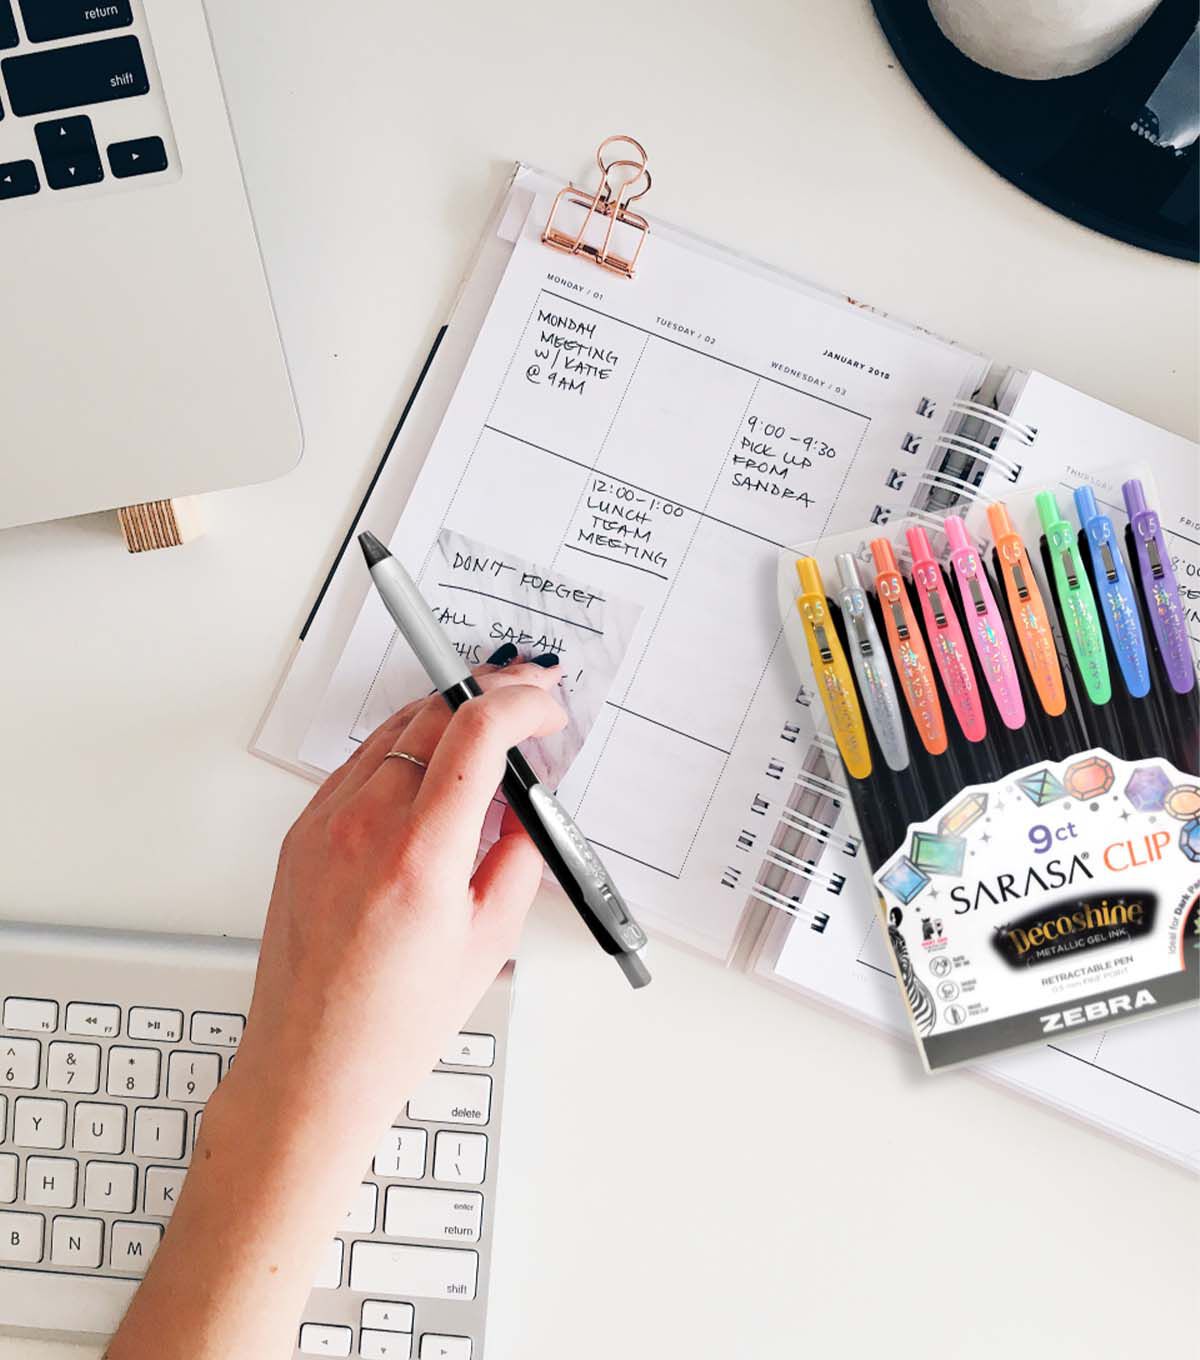 return
shift
MONDAY / 01
TUESDAY / 02
WEDNESDAY / 03
JANUARY 2018
MONDAY
MEETING
W/ KATIE
@ 9AM
9:00 - 9:30
PICK UP
FROM
SANDRA
12:00 - 1:00
LUNCH
TEAM
MEETING
DON'T FORGET
CALL SARAH
THIS
!
THURSDAY
0.5
0.5
0.5
0.5
0.5
0.5
0.5
0.5
0.5
9ct
SARASA® CLIP
Decoshine
METALLIC GEL INK
RETRACTABLE PEN
0.5 mm FINE POINT
ideal for Dark
ZEBRA
F6
F7
F8
F9
^
6
&
7
*
8
(
9
delete
Y
U
I
}
]
|
\
H
J
K
enter
return
B
N
M
shift